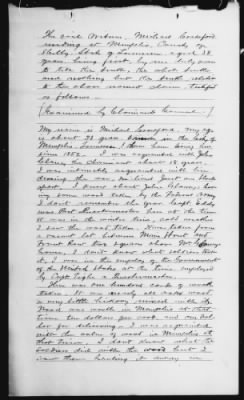 The said Witness Michael
residing at Memphis, County of
Shelby, State of Tennessee, aged 38
years, being first by me duly sworn
to tell the truth, the whole truth
and nothing but the truth relative
to the above named claim testified
as follows.
(Examined by Claimant Counsel.)
My name is Michael my age
is about 38 years. in the City of
Memphis, Tennessee I have been living here
since 1852. I was acquainted with John
the Claimant about 18 years. I
was intimately acquainted with him
I knew about John having
some wood taken by the Federal Army
I don't remember the year. Capt Eddy
was Post Quartermaster here at the time
It was in the winter time, cold weather
I saw the wood taken. It was taken from
a vacant lot between Main Street and
Front Row two squares above Mr
house. I don't know what soldiers took
it, I was in the employ of the Government
of the United States at the time, employed
by Capt Eagle a Quartermaster.
There was one hundred cords of wood
taken. It was nearly all oak wood
a very little hickory mixed with it.
Wood was worth in Memphis at that
time ten dollars per cord and one dollar
for delivering. I was acquainted
with the value of wood in Memphis at
that time. I don't know what the
Soldiers did with the wood but I
saw them hauling it away